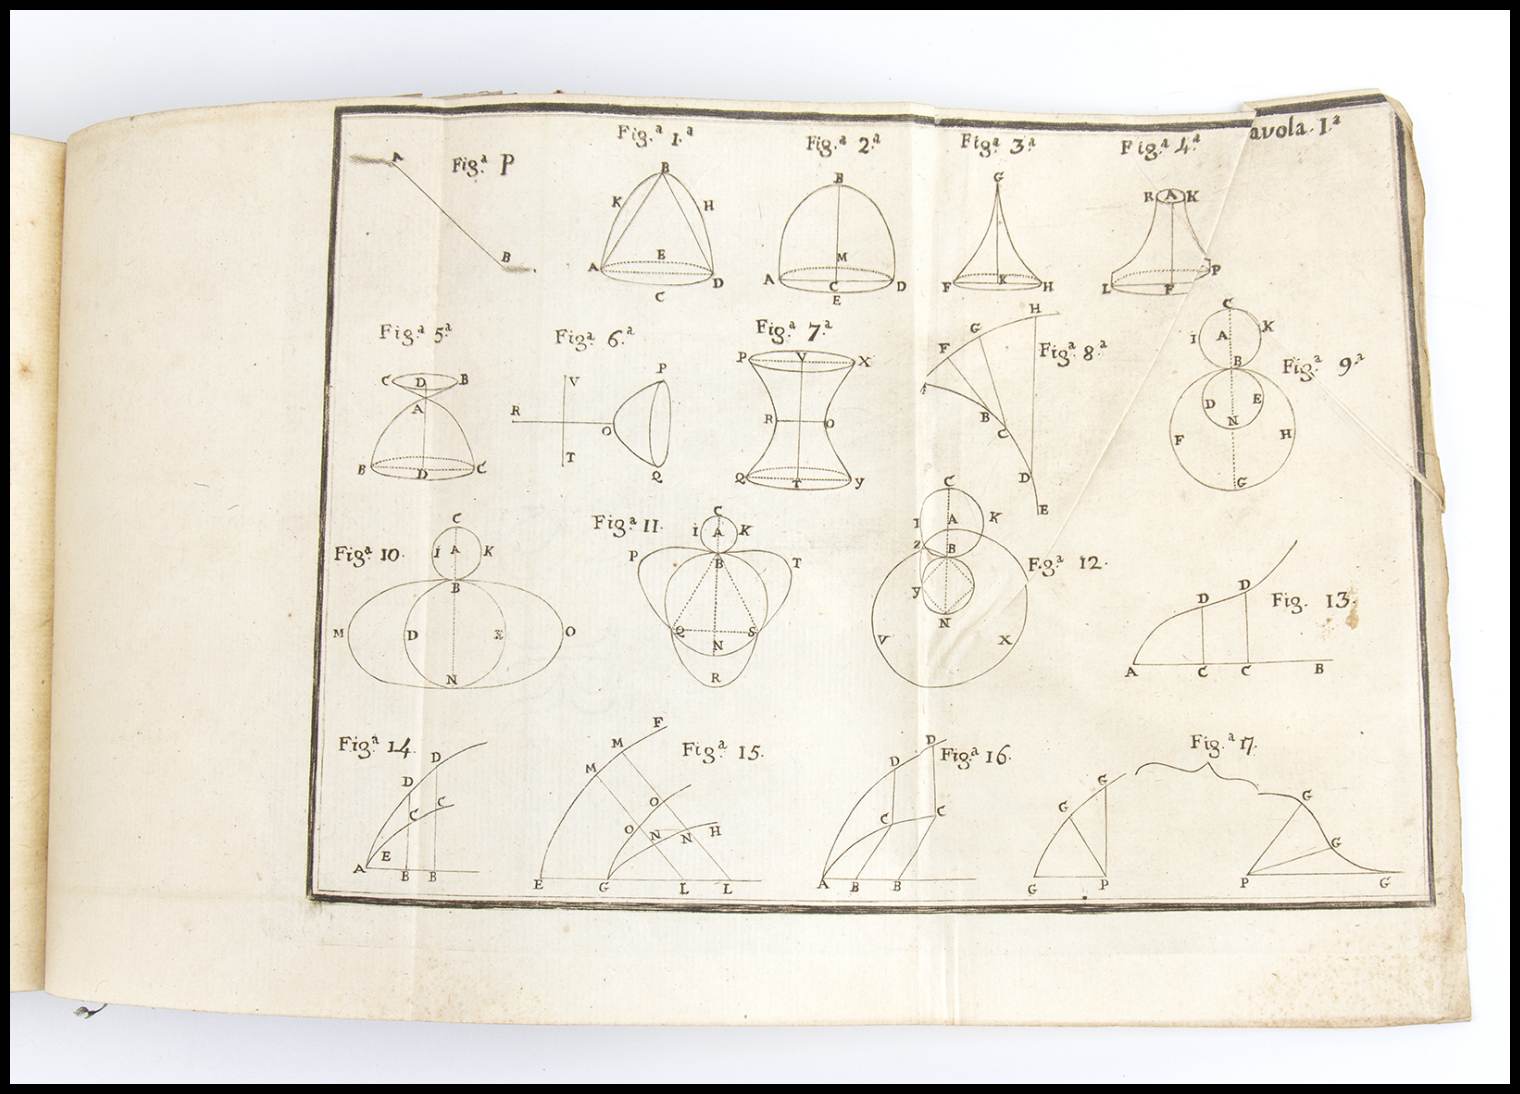 avola. I.ª
Fig.ª P
A
B
Fig.ª 1.ª
B
K H
A E D
C
Fig.ª 2.ª
B
M
A C D
E
Fig.ª 3.ª
G
F K H
Fig.ª 4.ª
R A K
P
L F
Fig.ª 5.ª
C D B
A
B D C
Fig.ª 6.ª
V P
R O
T Q
Fig.ª 7.ª
P V X
R O
Q T y
Fig.ª 8.ª
H
G
F
B
C
D
E
Fig.ª 9.ª
C
I A K
B
D E
N
F H
G
Fig.ª 10.
C
I A K
B
M D E O
N
Fig.ª 11.
C
I A K
P B T
Q S
N
R
F.g.ª 12.
C
I A K
Z B
y
N
V X
Fig. 13.
D D
A C C B
Fig.ª 14
D D
C C
E
A B B
Fig.ª 15.
F
M M
O O
N N H
E G L L
Fig.ª 16.
D D
C C
A B B
Fig.ª 17.
G G G
G
G P P G